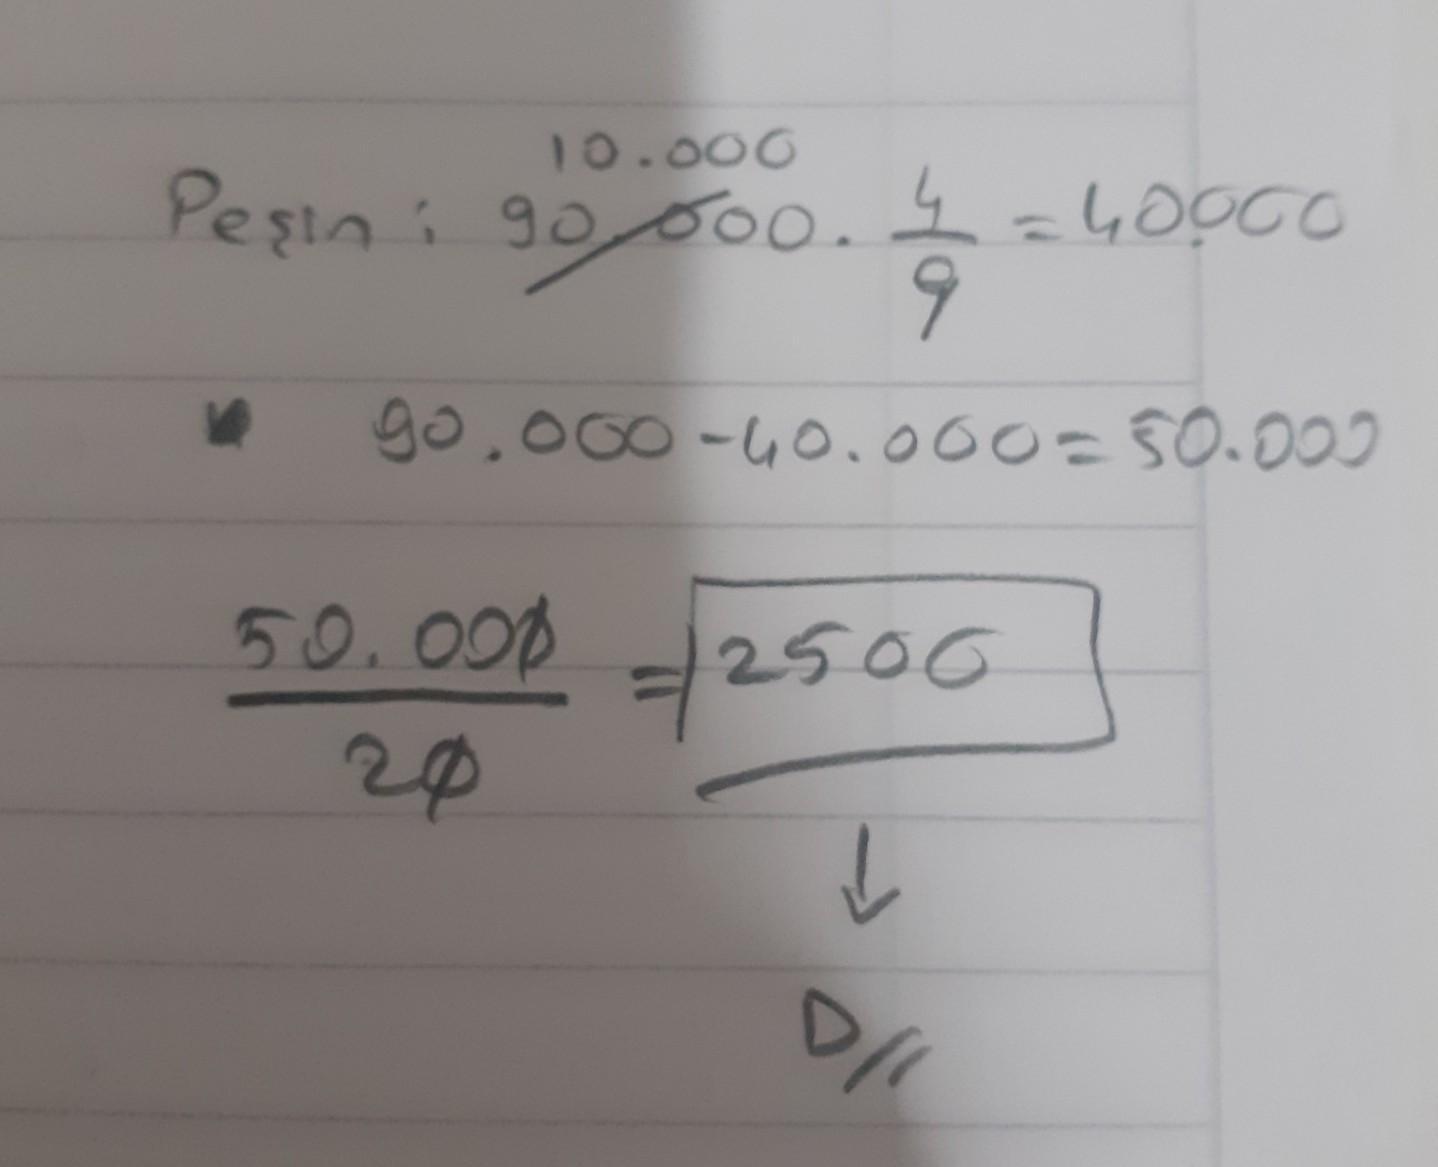 10.000
Peşin : 90.000 . 4/9 = 40.000
90.000 - 40.000 = 50.000
50.000/20 = 2500
↓
D//